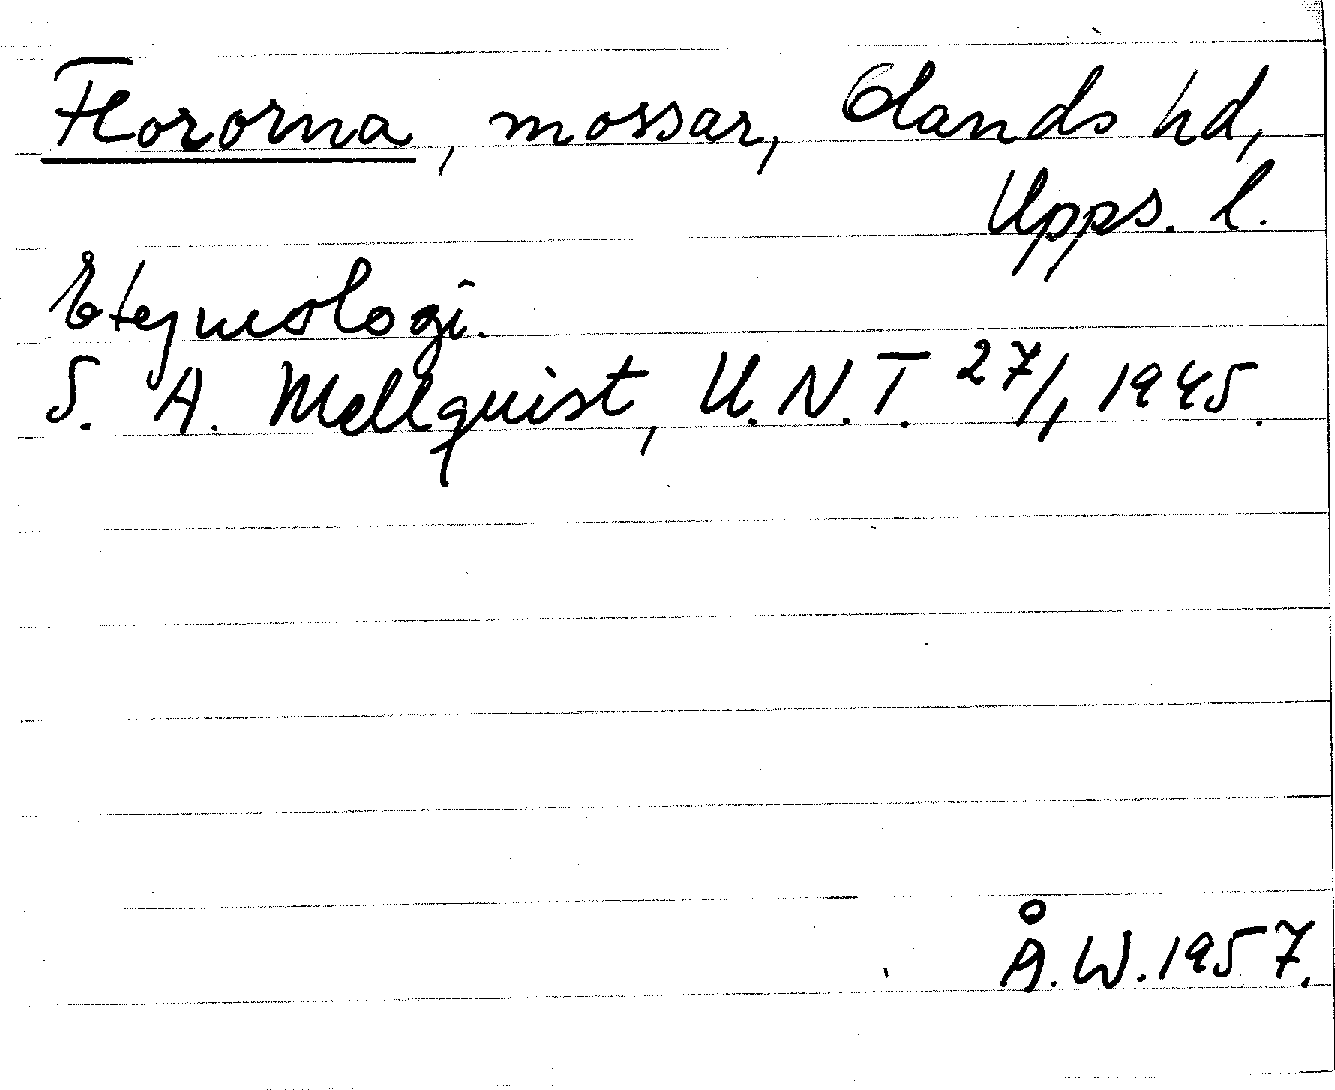 Flororna, mossar, Olands hd,
Upps. l.
Etymologi.
S. A. Mellquist, U.N.T. 27/1, 1945.
Å.W.1957.